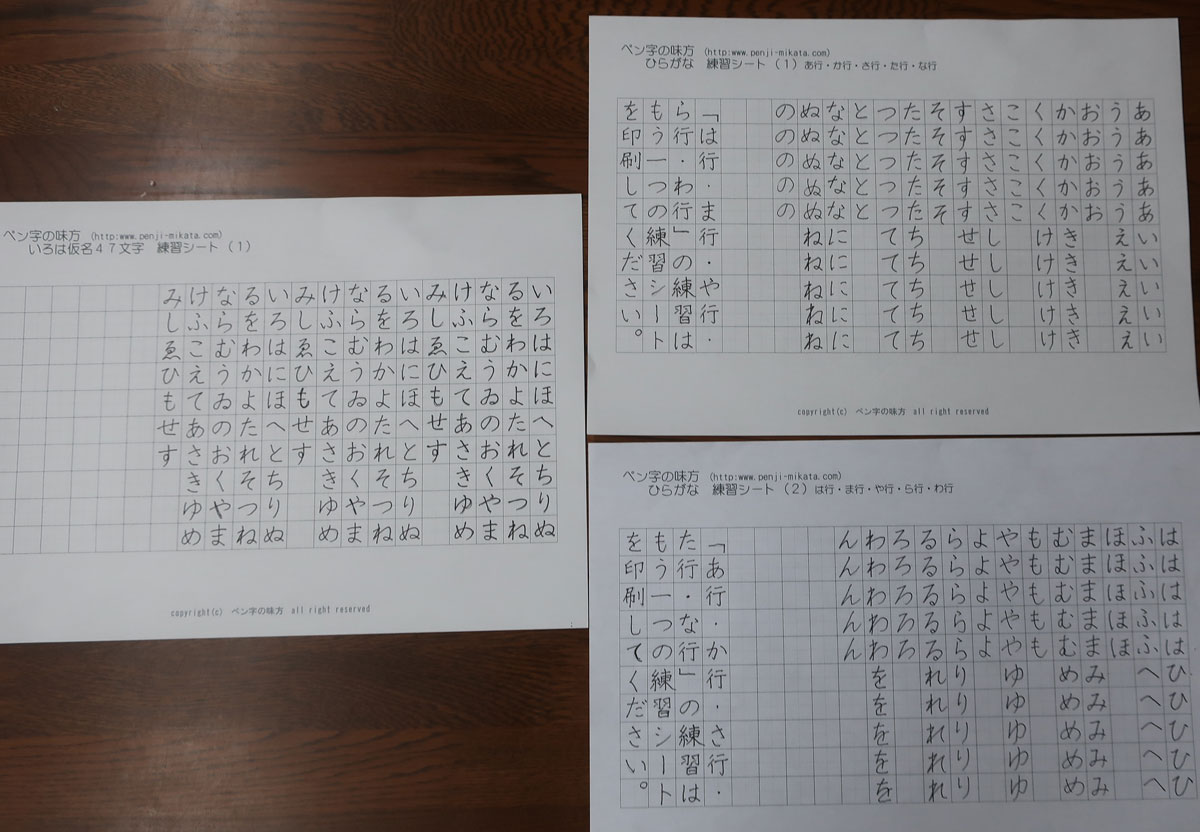 ペン字の味方 (http:www.penji-mikata.com)
いろは仮名47文字 練習シート(1)
いろはにほへとちりぬ
るをわかよたれそつね
ならむうゐのおくやま
けふこえてあさきゆめ
みしゑひもせす
いろはにほへとちりぬ
るをわかよたれそつね
ならむうゐのおくやま
けふこえてあさきゆめ
みしゑひもせす
いろはにほへとちりぬ
るをわかよたれそつね
ならむうゐのおくやま
けふこえてあさきゆめ
みしゑひもせす
copyright(c) ペン字の味方 all right reserved
ペン字の味方 (http:www.penji-mikata.com)
ひらがな 練習シート(1)あ行・か行・さ行・た行・な行
あああああいいいいい
うううううえええええ
おおおおお
かかかかかききききき
くくくくくけけけけけ
こここここ
さささささししししし
すすすすすせせせせせ
そそそそそ
たたたたたちちちちち
つつつつつててててて
ととととと
なななななににににに
ぬぬぬぬぬねねねねね
ののののの
「は行・ま行・や行・
ら行・わ行」の練習は
もう一つの練習シート
を印刷してください。
copyright(c) ペン字の味方 all right reserved
ペン字の味方 (http:www.penji-mikata.com)
ひらがな 練習シート(2)は行・ま行・や行・ら行・わ行
はははははひひひひひ
ふふふふふへへへへへ
ほほほほほ
まままままみみみみみ
むむむむむめめめめめ
ももももも
やややややゆゆゆゆゆ
よよよよよ
らららららりりりりり
るるるるるれれれれれ
ろろろろろ
わわわわわををををを
んんんんん
「あ行・か行・さ行・
た行・な行」の練習は
もう一つの練習シート
を印刷してください。